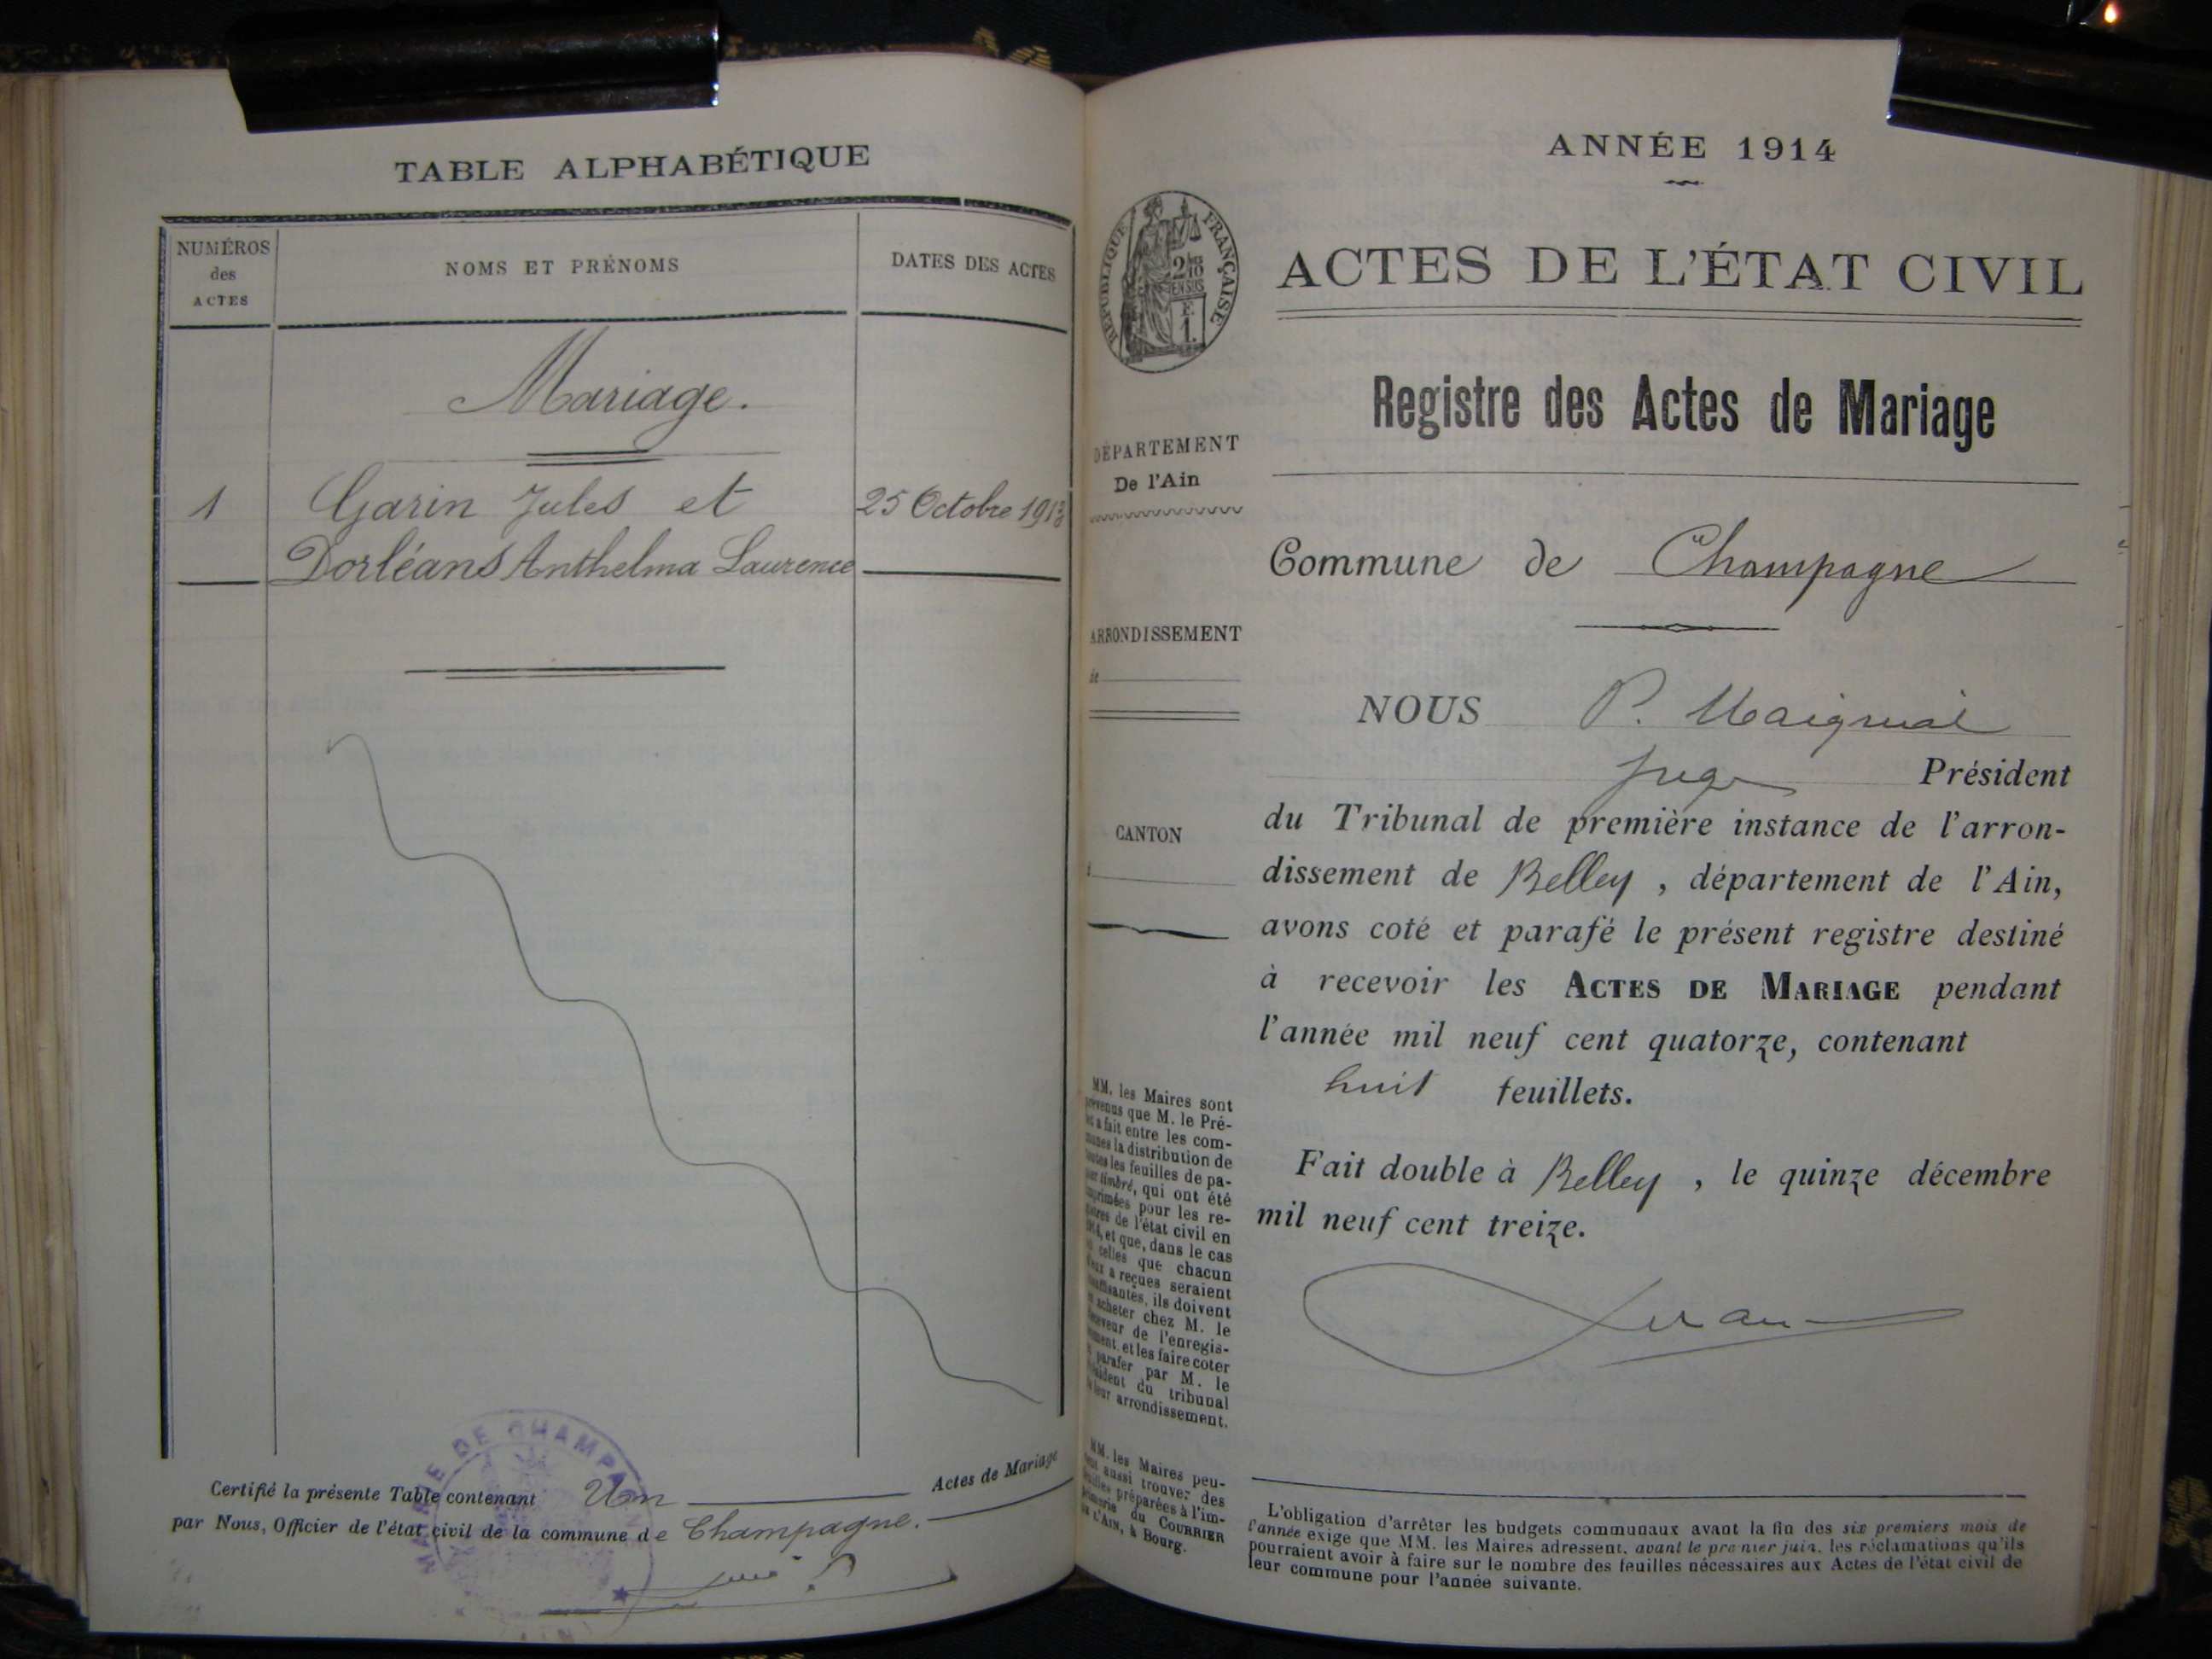 TABLE ALPHABÉTIQUE
NUMÉROS
des
ACTES
NOMS ET PRÉNOMS
DATES DES ACTES
Mariage.
1 Garin Jules et 25 Octobre 1913
Dorléans Anthelma Laurence
Certifié la présente Table contenant Un Actes de Mariage
par Nous, Officier de l'état civil de la commune de Champagne.
MAIRIE DE CHAMPAGNE
ANNÉE 1914
RÉPUBLIQUE FRANÇAISE
ACTES DE L'ÉTAT CIVIL
Registre des Actes de Mariage
DÉPARTEMENT
De l'Ain
Commune de Champagne
ARRONDISSEMENT
de
NOUS P.
Juge Président
du Tribunal de première instance de l'arron-
CANTON
dissement de Belley, département de l'Ain,
avons coté et parafé le présent registre destiné
à recevoir les ACTES DE MARIAGE pendant
l'année mil neuf cent quatorze, contenant
huit feuillets.
Fait double à Belley, le quinze décembre
mil neuf cent treize.
MM. les Maires sont
prévenus que M. le Pré-
fet a fait entre les com-
munes la distribution de
toutes les feuilles de pa-
pier timbré, qui ont été
imprimées pour les re-
gistres de l'état civil en
1914, et que, dans le cas
où celles que chacun
d'eux a reçues seraient
insuffisantes, ils doivent
en acheter chez M. le
Receveur de l'enregis-
trement et les faire coter
et parafer par M. le
Président du tribunal
de leur arrondissement.
MM. les Maires peu-
vent aussi trouver des
feuilles préparées à l'im-
primerie du COURRIER
DE L'AIN, à Bourg.
L'obligation d'arrêter les budgets communaux avant la fin des six premiers mois de
l'année exige que MM. les Maires adressent, avant le premier juin, les réclamations qu'ils
pourraient avoir à faire sur le nombre des feuilles nécessaires aux Actes de l'état civil de
leur commune pour l'année suivante.